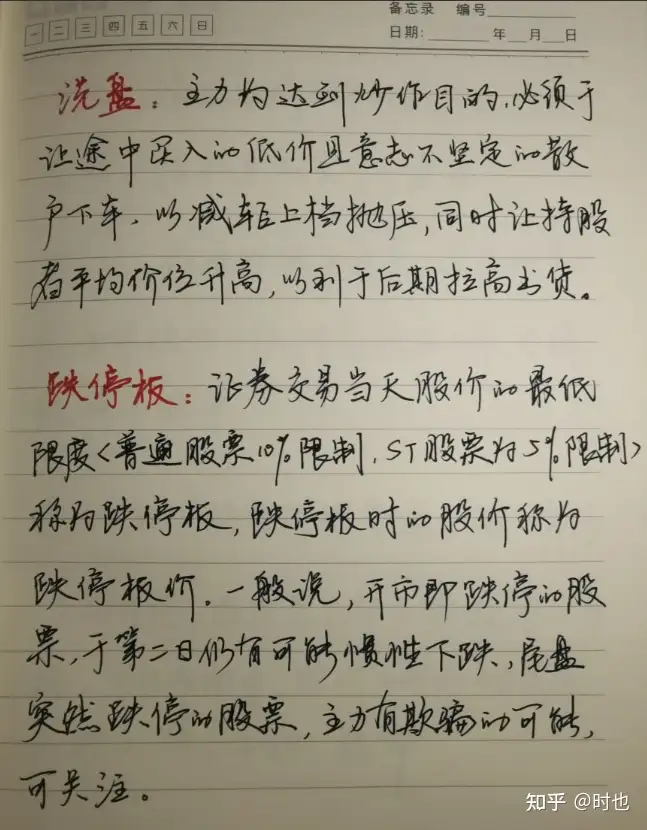 备忘录 编号
一 二 三 四 五 六 日
日期: 年 月 日
洗盘：主力为达到炒作目的，必须于
让途中买入的低价且意志不坚定的散
户下车，以减轻上档抛压，同时让持股
者平均价位升高，以利于后期拉高出货。
跌停板：证券交易当天股价的最低
限度<普通股票10%限制，ST股票为5%限制>
称为跌停板，跌停板时的股价称为
跌停板价。一般说，开市即跌停的股
票，于第二日仍有可能惯性下跌，尾盘
突然跌停的股票，主力有欺骗的可能，
可关注。
知乎 @时也